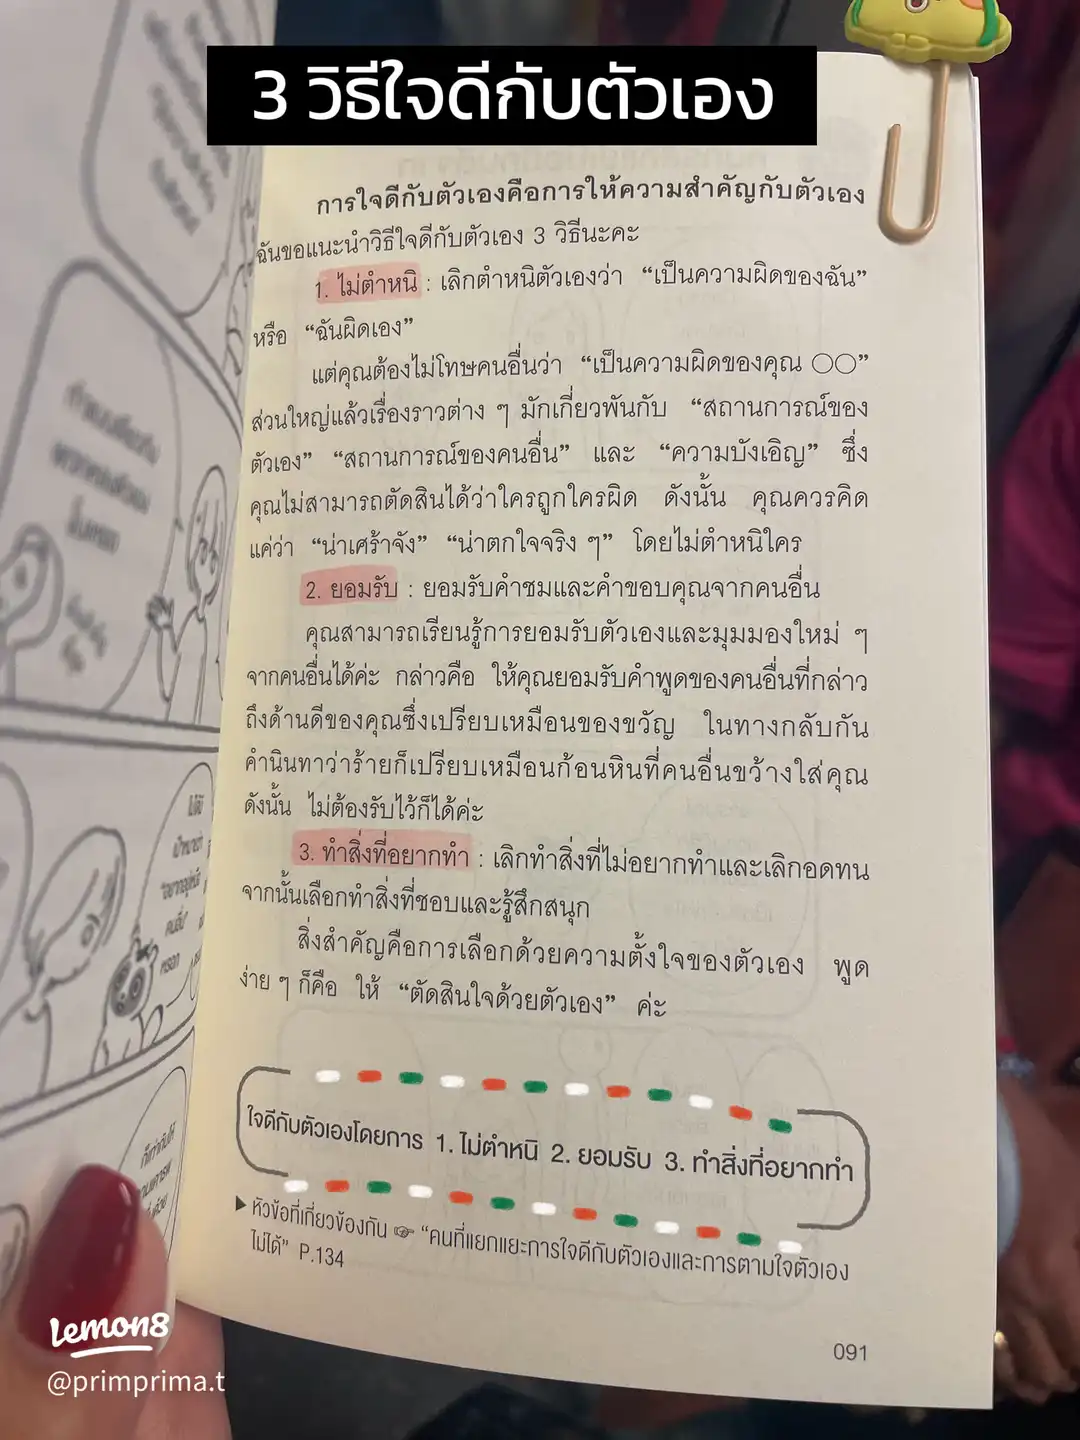 3 วิธีใจดีกับตัวเอง
การใจดีกับตัวเองคือการให้ความสำคัญกับตัวเอง
ฉันขอแนะนำวิธีใจดีกับตัวเอง 3 วิธีนะคะ
1. ไม่ตำหนิ : เลิกตำหนิตัวเองว่า “เป็นความผิดของฉัน”
หรือ “ฉันผิดเอง”
แต่คุณต้องไม่โทษคนอื่นว่า “เป็นความผิดของคุณ ○○”
ส่วนใหญ่แล้วเรื่องราวต่าง ๆ มักเกี่ยวพันกับ “สถานการณ์ของ
ตัวเอง” “สถานการณ์ของคนอื่น” และ “ความบังเอิญ” ซึ่ง
คุณไม่สามารถตัดสินได้ว่าใครถูกใครผิด ดังนั้น คุณควรคิด
แค่ว่า “น่าเศร้าจัง” “น่าตกใจจริง ๆ” โดยไม่ตำหนิใคร
2. ยอมรับ : ยอมรับคำชมและคำขอบคุณจากคนอื่น
คุณสามารถเรียนรู้การยอมรับตัวเองและมุมมองใหม่ ๆ
จากคนอื่นได้ค่ะ กล่าวคือ ให้คุณยอมรับคำพูดของคนอื่นที่กล่าว
ถึงด้านดีของคุณซึ่งเปรียบเหมือนของขวัญ ในทางกลับกัน
คำนินทาว่าร้ายก็เปรียบเหมือนก้อนหินที่คนอื่นขว้างใส่คุณ
ดังนั้น ไม่ต้องรับไว้ก็ได้ค่ะ
3. ทำสิ่งที่อยากทำ : เลิกทำสิ่งที่ไม่อยากทำและเลิกอดทน
จากนั้นเลือกทำสิ่งที่ชอบและรู้สึกสนุก
สิ่งสำคัญคือการเลือกด้วยความตั้งใจของตัวเอง พูด
ง่าย ๆ ก็คือ ให้ “ตัดสินใจด้วยตัวเอง” ค่ะ
ใจดีกับตัวเองโดยการ 1. ไม่ตำหนิ 2. ยอมรับ 3. ทำสิ่งที่อยากทำ
▶ หัวข้อที่เกี่ยวข้องกัน ☞ “คนที่แยกแยะการใจดีกับตัวเองและการตามใจตัวเอง
ไม่ได้” P.134
091
Lemon8
@primprima.t